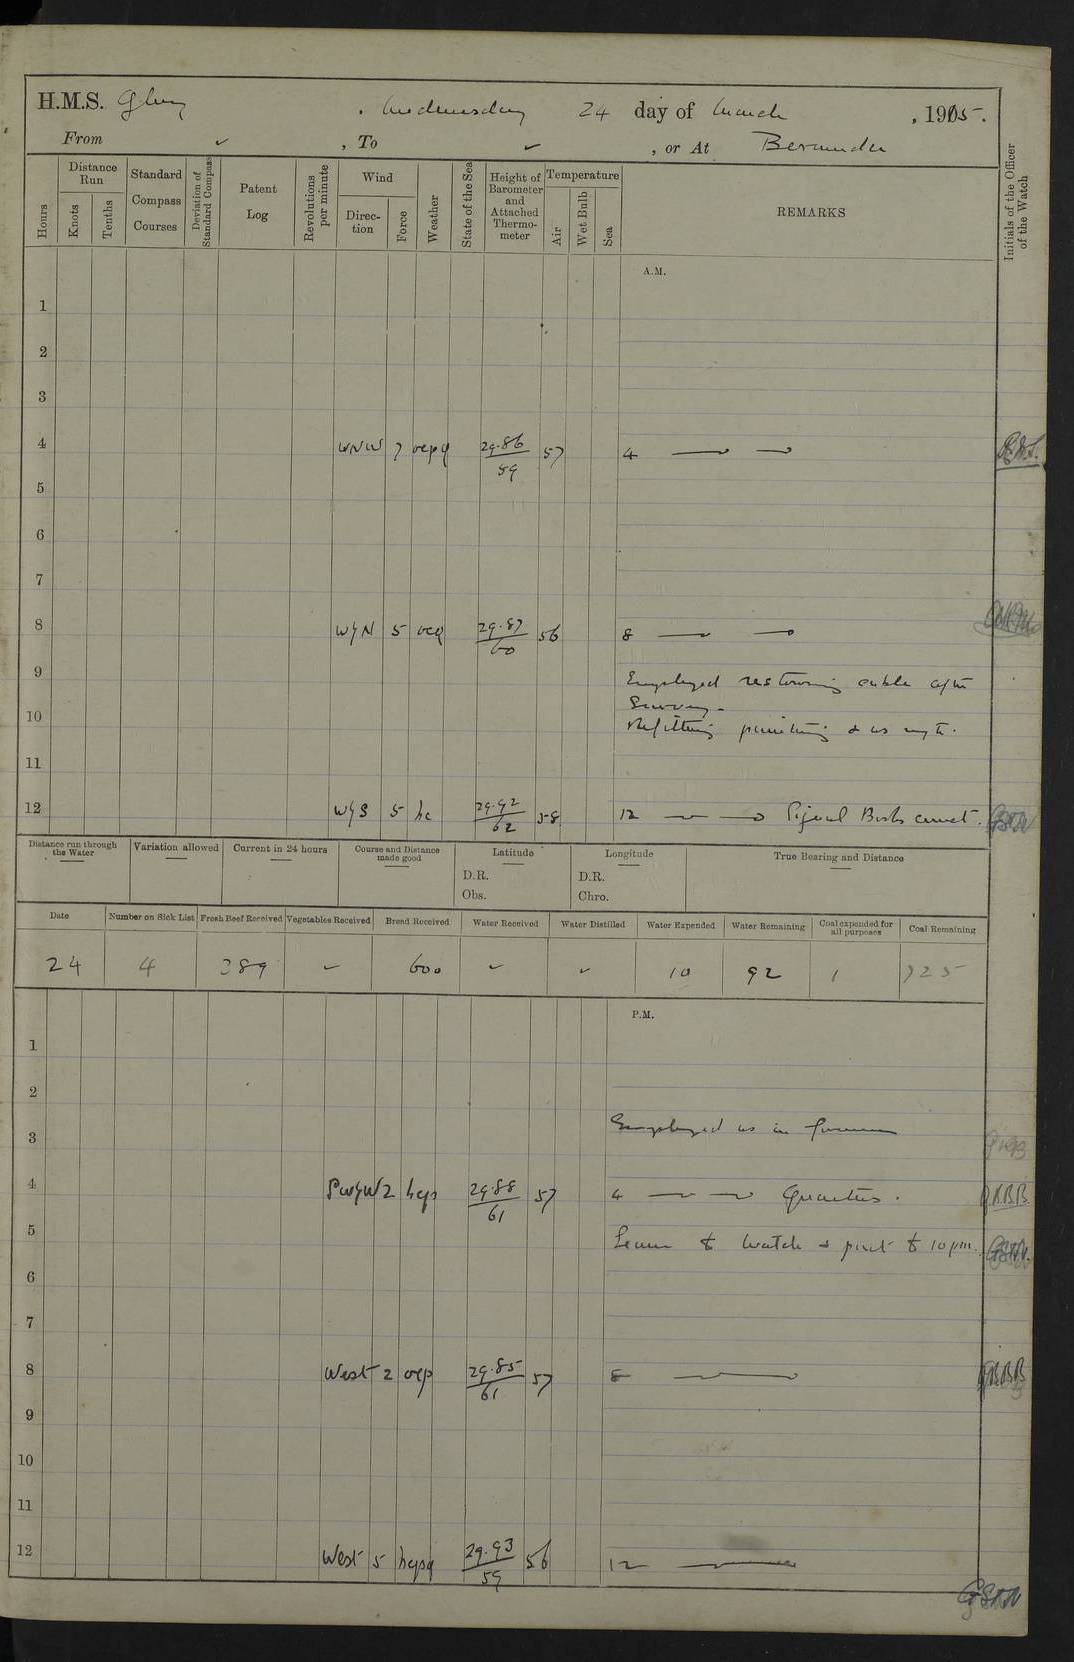 H.M.S. Glory , Wednesday 24 day of March , 1915.
From ✓ , To ✓ , or At Bermuda
Hours
Distance Run
Knots
Tenths
Standard Compass Courses
Deviation of Standard Compass
Patent Log
Revolutions per minute
Wind
Direction
Force
Weather
State of the Sea
Height of Barometer and Attached Thermometer
Temperature
Air
Wet Bulb
Sea
REMARKS
Initials of the Officer of the Watch
A.M.
1
2
3
4 WNW 7 ocpq 29.86 59 57 4
5
6
7
8 WbN 5 ocq 29.87 60 56 8
9 Employed restowing cable after
survey.
10 Refitting painting & as reqte.
11
12 WbS 5 bc 29.92 62 58 12 Signal Books correct. GSHN
Distance run through the Water
Variation allowed
Current in 24 hours
Course and Distance made good
Latitude
D.R.
Obs.
Longitude
D.R.
Chro.
True Bearing and Distance
Date Number on Sick List Fresh Beef Received Vegetables Received Bread Received Water Received Water Distilled Water Expended Water Remaining Coal expended for all purposes Coal Remaining
24 4 389 ✓ 600 ✓ ✓ 10 92 1 725
P.M.
1
2
3 Employed as in forenoon
4 SWbW 2 bcp 29.88 61 57 4 Quarters.
5 Leave to Watch & part to 10 pm.
6
7
8 West 2 ocp 29.85 61 57 8
9
10
11
12 West 5 bcpq 29.93 59 56 12